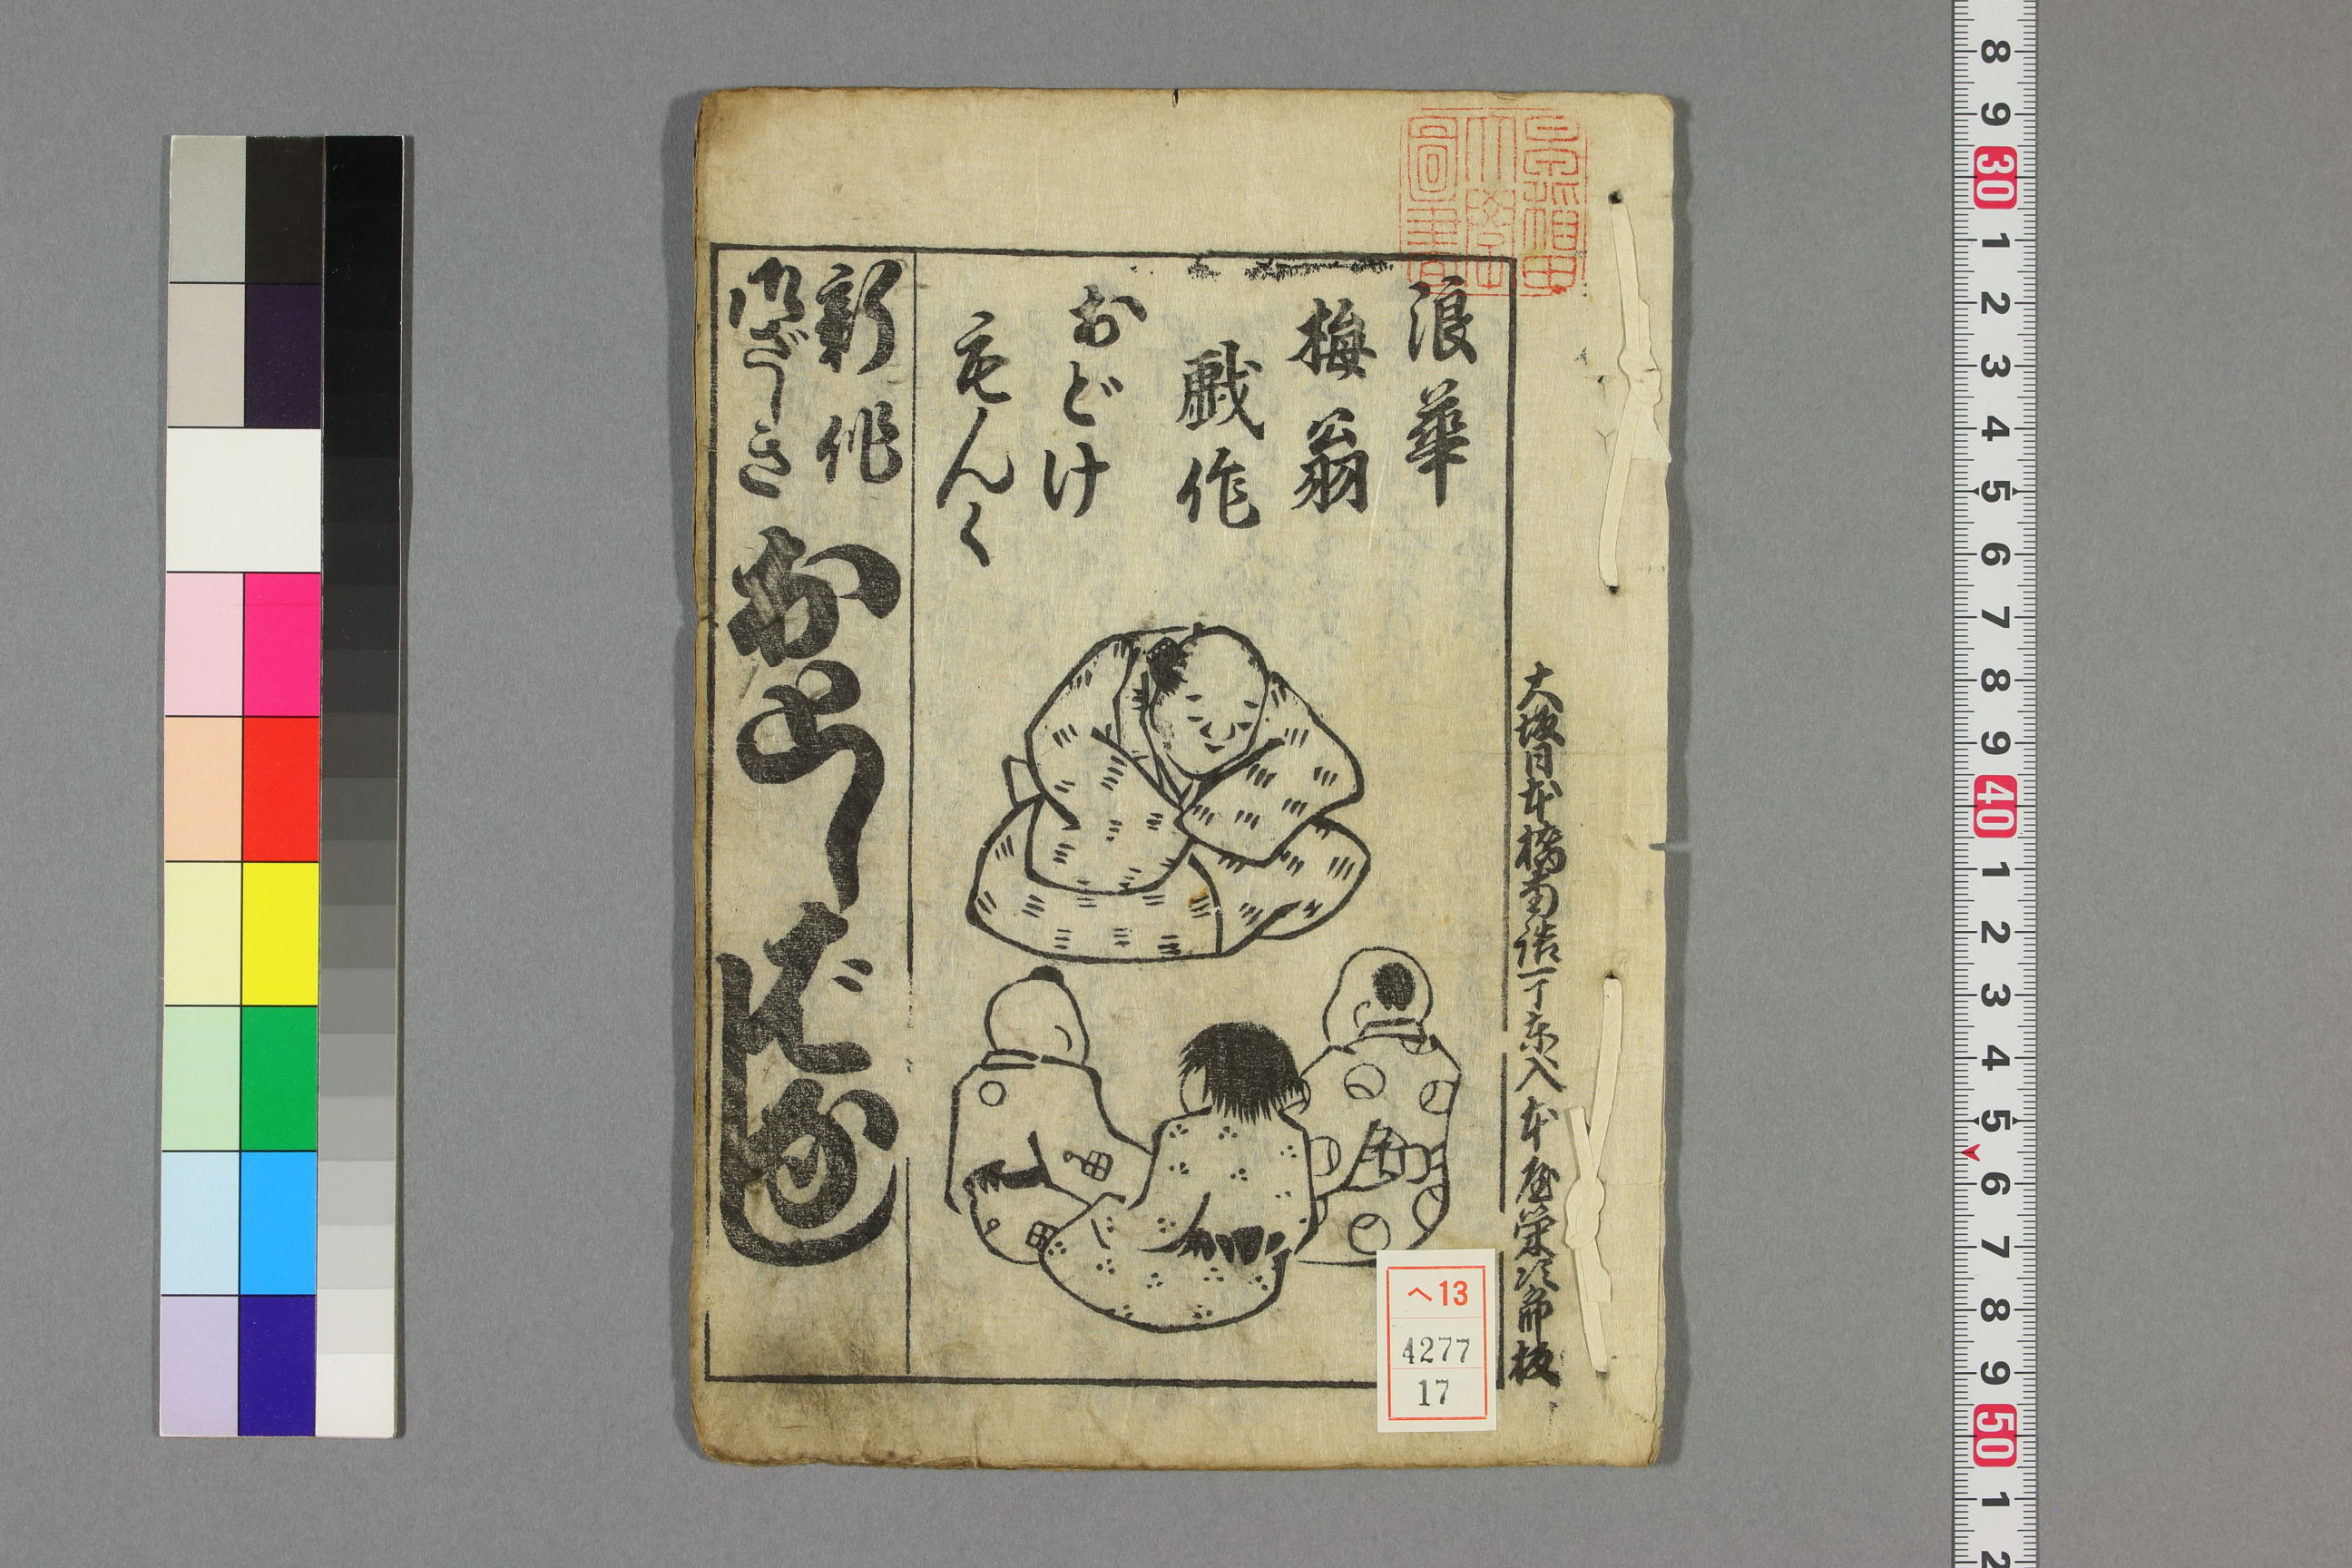 早稲田
大學
圖書
大坂日本橋南詰一丁東入本屋栄次郎板
浪華
梅翁
戯作
おどけ
もんく
新作
御ざしき
おとしばなし
ヘ13
4277
17
8
9
30
1
2
3
4
5
6
7
8
9
40
1
2
3
4
5
6
7
8
9
50
1
2